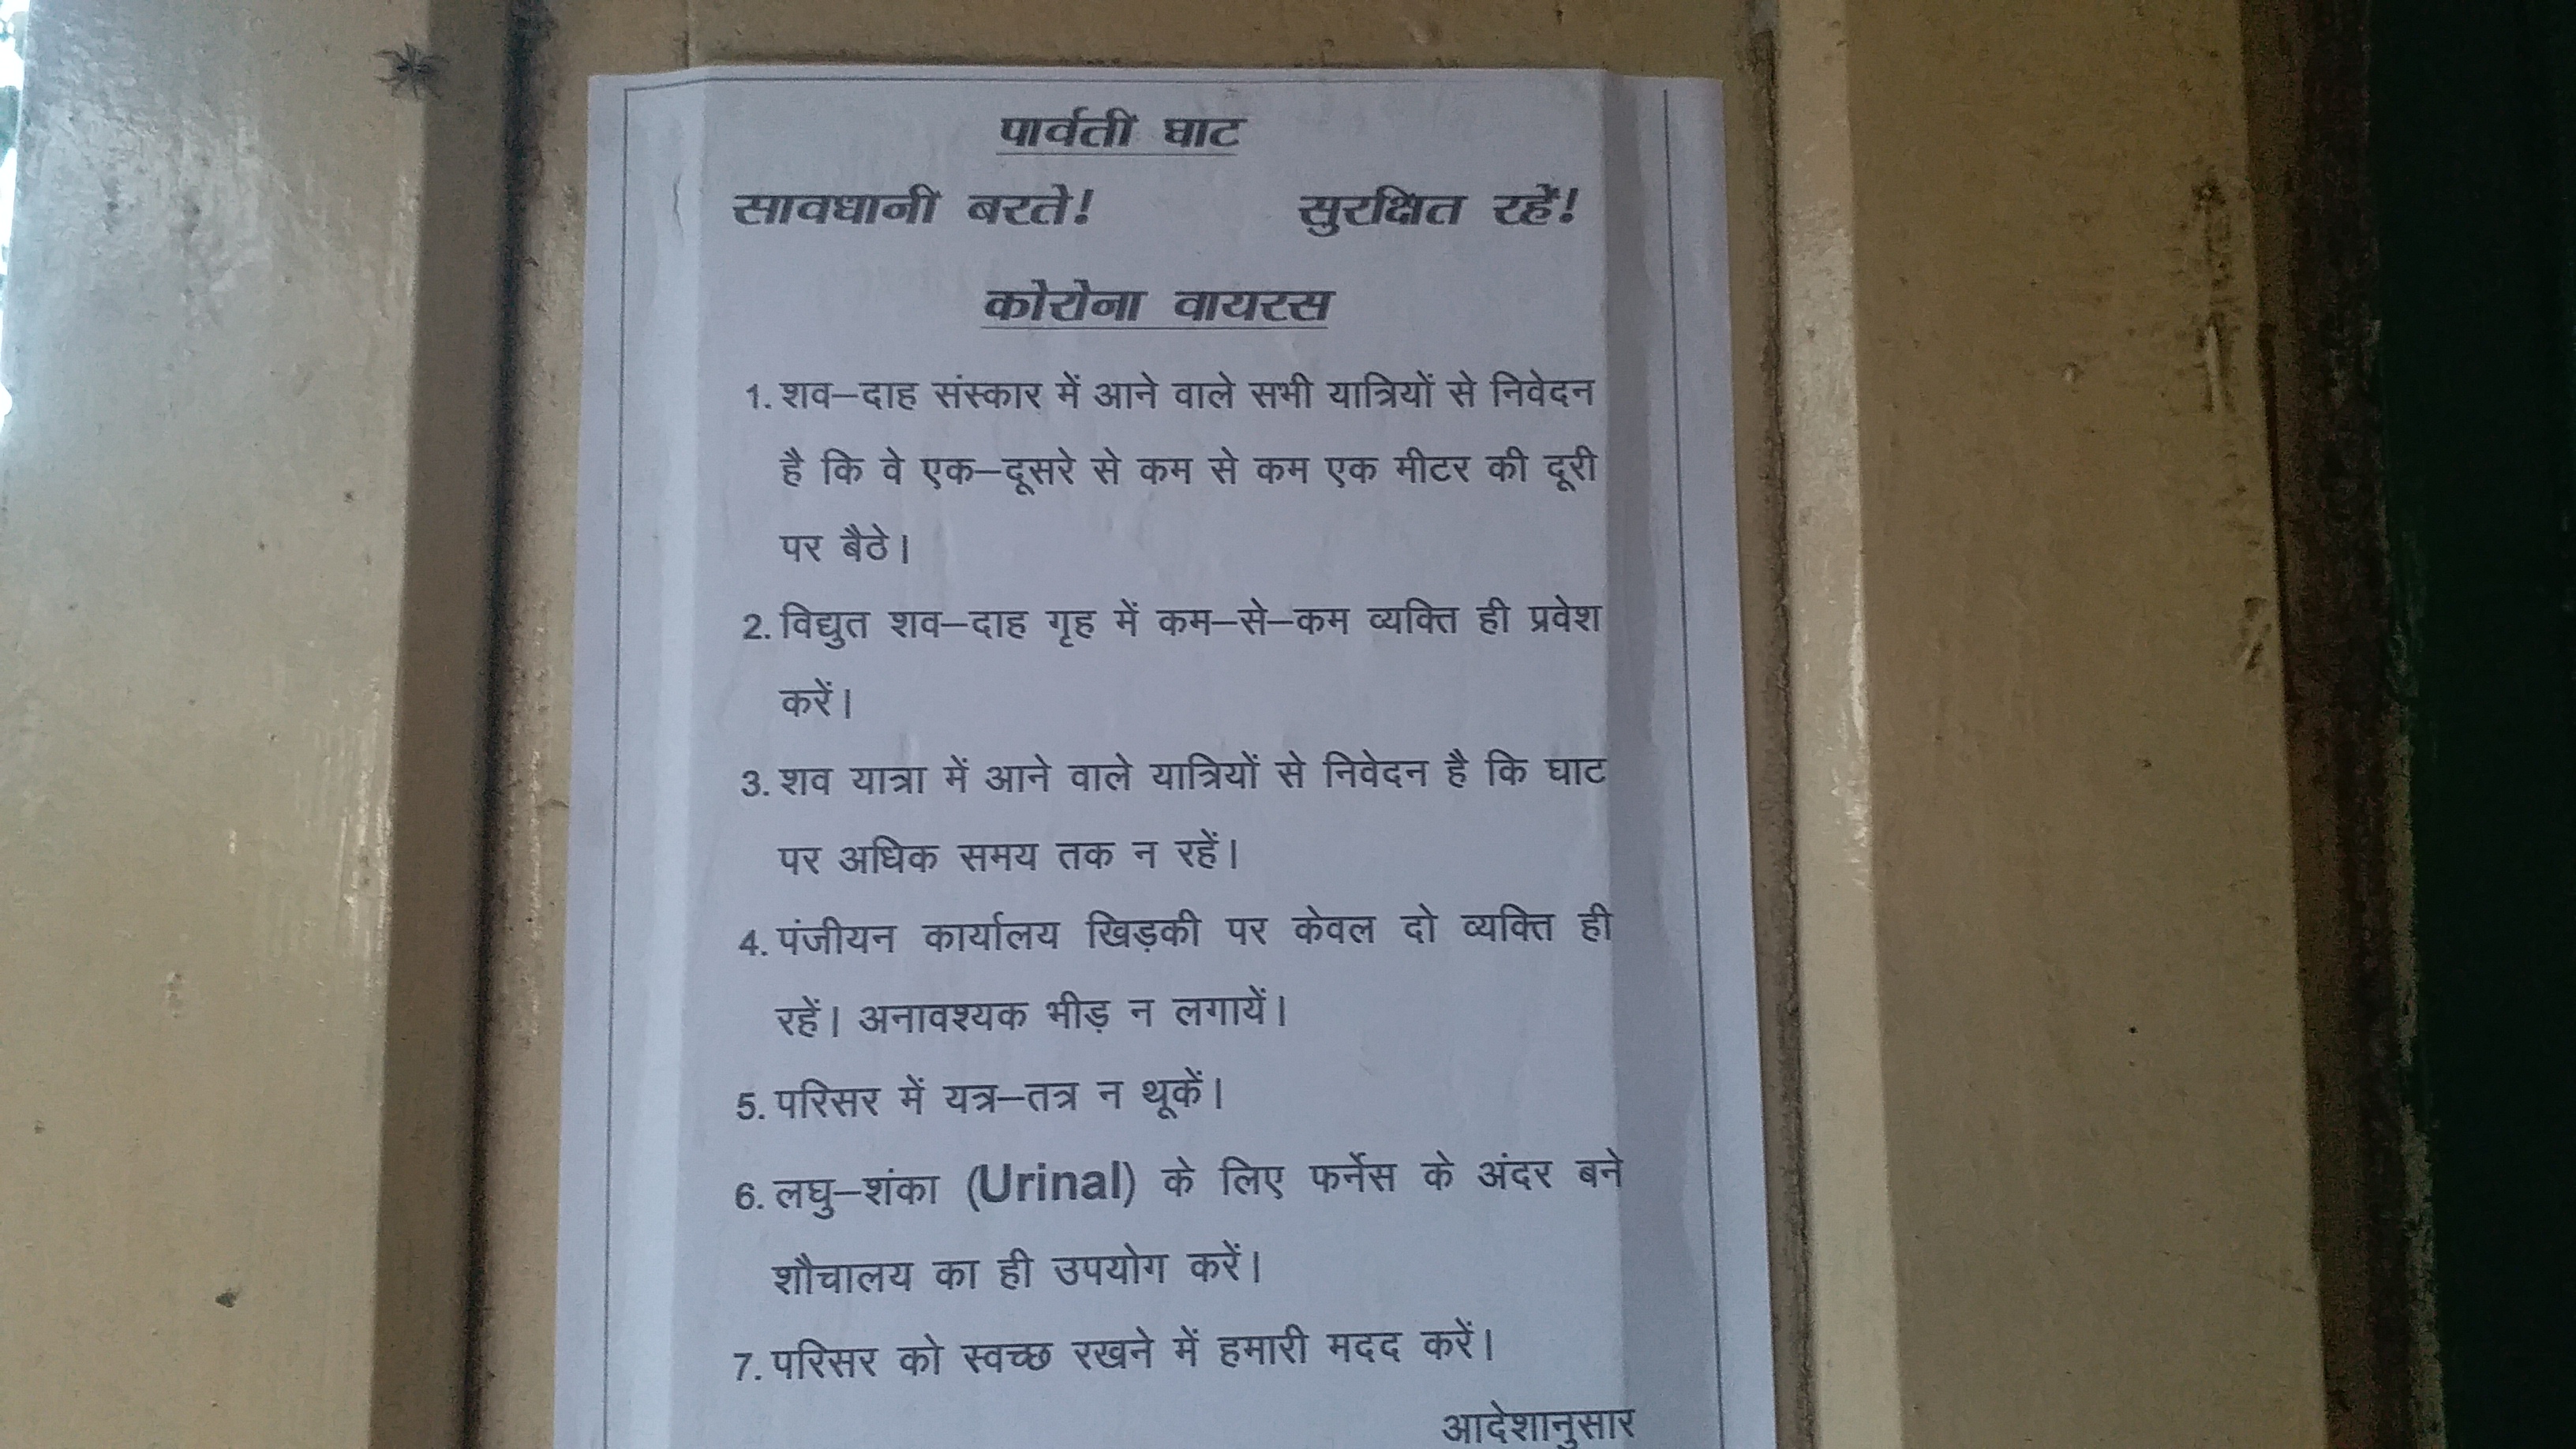 पार्वती घाट
सावधानी बरते! सुरक्षित रहें!
कोरोना वायरस
1. शव–दाह संस्कार में आने वाले सभी यात्रियों से निवेदन
है कि वे एक–दूसरे से कम से कम एक मीटर की दूरी
पर बैठे।
2. विद्युत शव–दाह गृह में कम–से–कम व्यक्ति ही प्रवेश
करें।
3. शव यात्रा में आने वाले यात्रियों से निवेदन है कि घाट
पर अधिक समय तक न रहें।
4. पंजीयन कार्यालय खिड़की पर केवल दो व्यक्ति ही
रहें। अनावश्यक भीड़ न लगायें।
5. परिसर में यत्र–तत्र न थूकें।
6. लघु–शंका (Urinal) के लिए फर्नेस के अंदर बने
शौचालय का ही उपयोग करें।
7. परिसर को स्वच्छ रखने में हमारी मदद करें।
आदेशानुसार